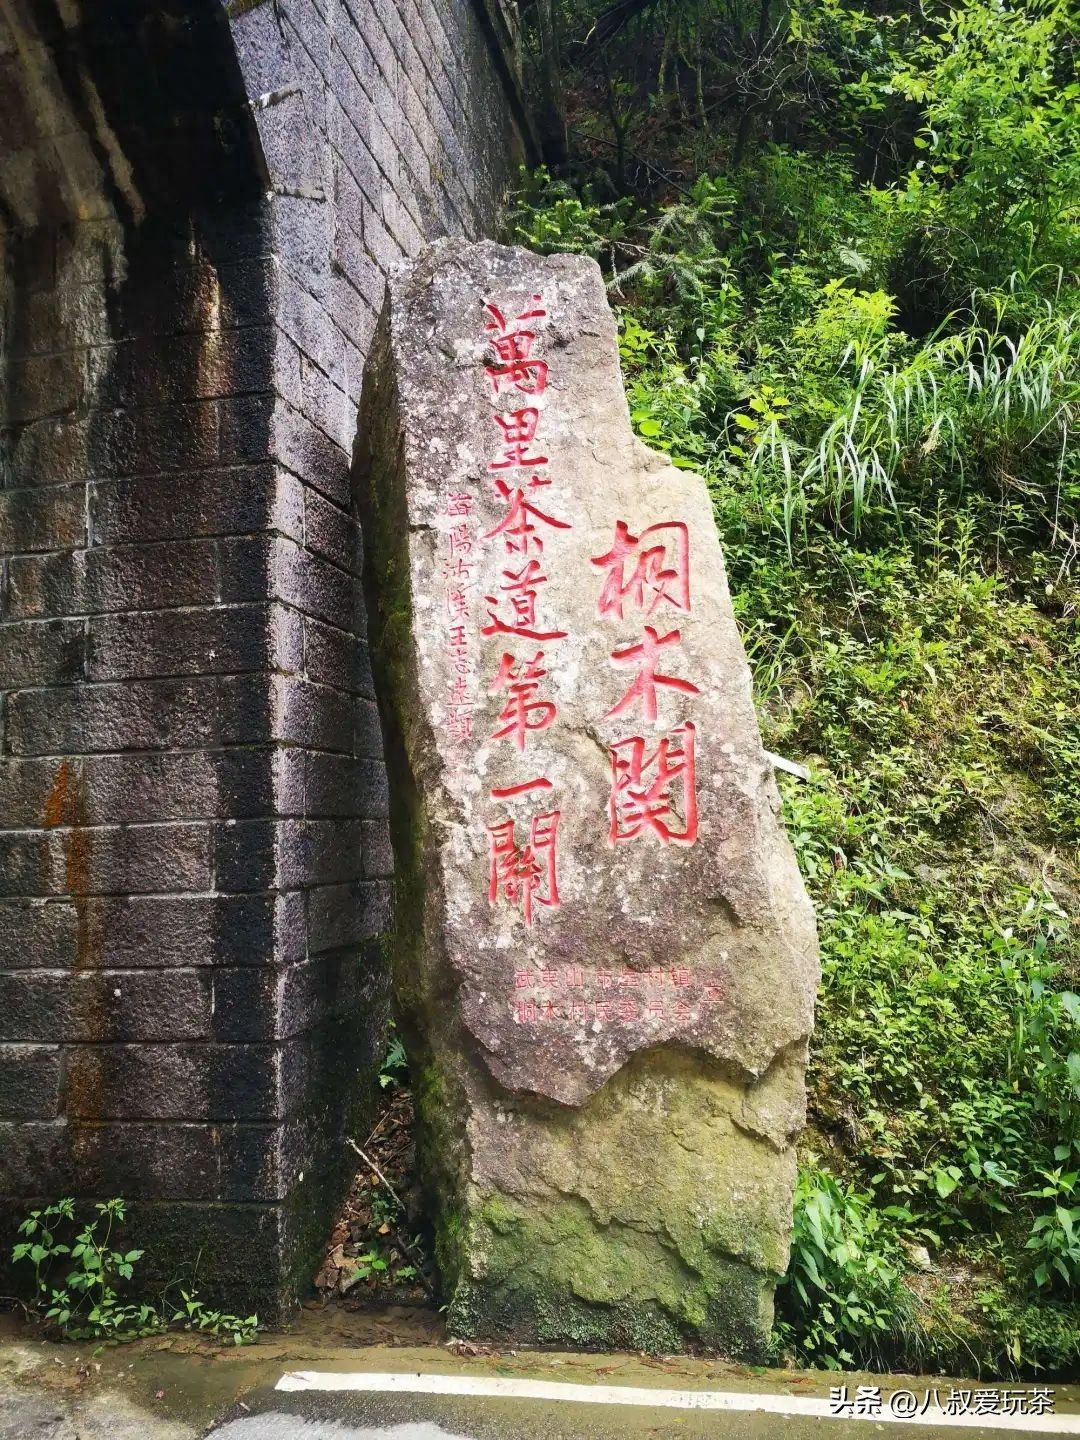 桐木関
萬里茶道第一關
海陽沽漢王志遠題
武夷山市星村镇
桐木村民委员会
立
头条 @八叔爱玩茶